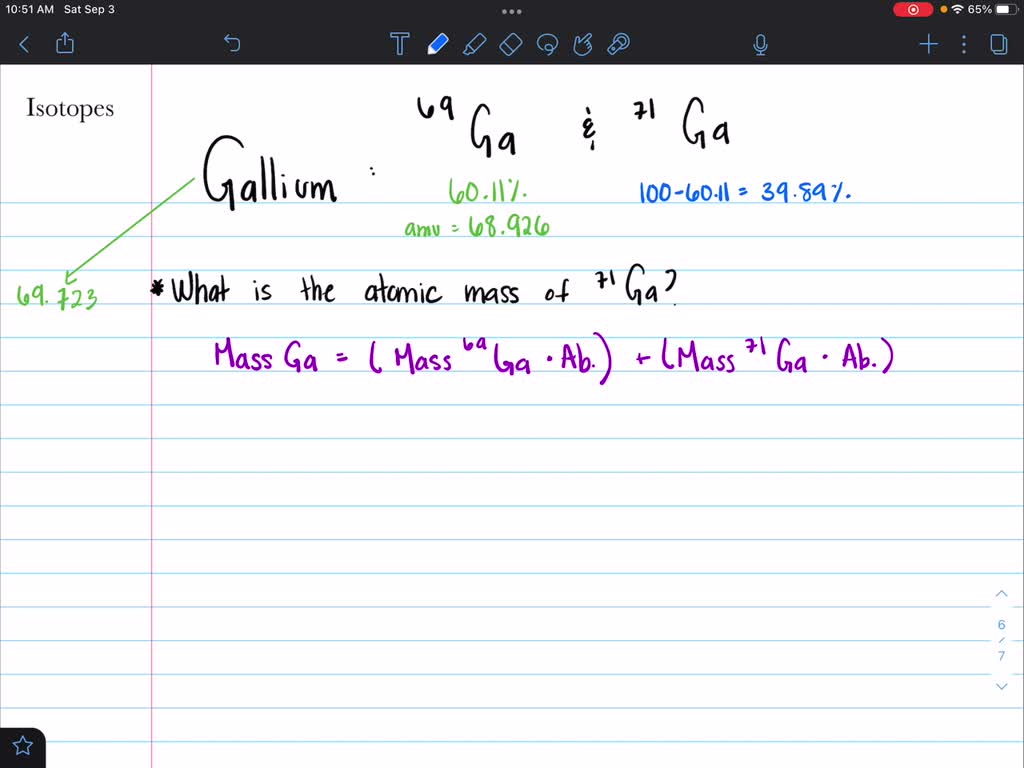 10:51 AM Sat Sep 3 65%
Isotopes
69 Ga & 71 Ga
Gallium :
60.11% 100-60.11 = 39.89%
amu = 68.926
69.723
* What is the atomic mass of 71 Ga?
Mass Ga = (Mass 69 Ga · Ab.) + (Mass 71 Ga · Ab.)
6
/
7